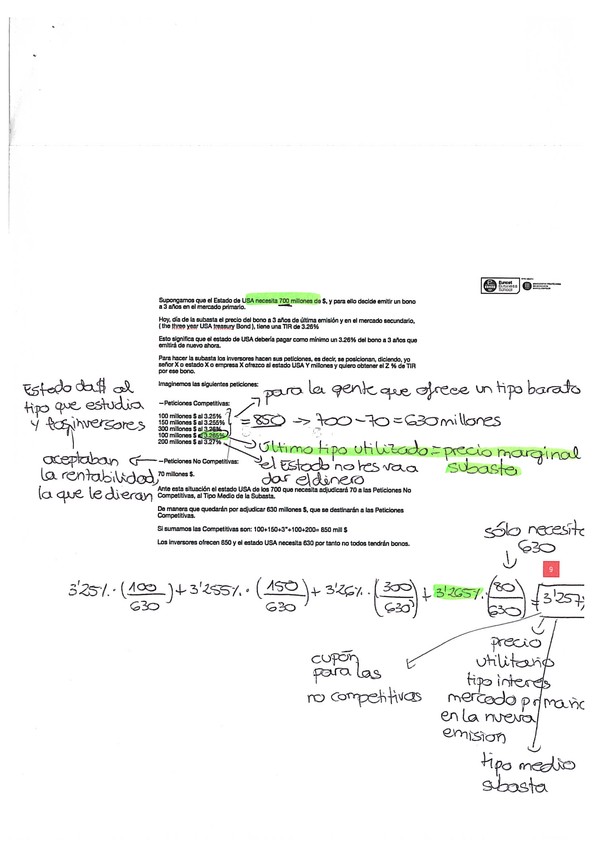 Euncet
Business
School
Supongamos que el Estado de USA necesita 700 millones de $, y para ello decide emitir un bono
a 3 años en el mercado primario.
Hoy, día de la subasta el precio del bono a 3 años de última emisión y en el mercado secundario,
( the three year USA treasury Bond ), tiene una TIR de 3.26%
Esto significa que el estado de USA debería pagar como mínimo un 3.26% del bono a 3 años que
emitirá de nuevo ahora.
Para hacer la subasta los inversores hacen sus peticiones, es decir, se posicionan, diciendo, yo
señor X o estado X o empresa X ofrezco al estado USA Y millones y quiero obtener el Z % de TIR
por ese bono.
Imaginemos las siguientes peticiones:
para la gente que ofrece un tipo barato
Estado da $ al
tipo que estudia
y los inversores
aceptaban
la rentabilidad,
la que le dieran
–Peticiones Competitivas:
100 millones $ al 3.25%
150 millones $ al 3.255%
300 millones $ al 3.26%
100 millones $ al 3.265%
200 millones $ al 3.27%
= 850 → 700 - 70 = 630 millones
último tipo utilizado = precio marginal
subasta
el Estado no les va a
dar el dinero
–Peticiones No Competitivas:
70 millones $.
Ante esta situación el estado USA de los 700 que necesita adjudicará 70 a las Peticiones No
Competitivas, al Tipo Medio de la Subasta.
De manera que quedarán por adjudicar 630 millones $, que se destinarán a las Peticiones
Competitivas.
Si sumamos las Competitivas son: 100+150+3"+100+200= 850 mill $
Los inversores ofrecen 850 y el estado USA necesita 630 por tanto no todos tendrán bonos.
sólo necesita
630
9
3'25%. (100/630) + 3'255%. (150/630) + 3'26%. (300/630) + 3'265%. (80/630) = 3'257%
cupón
para las
no competitivas
precio
utilitario
tipo interés
mercado primario
en la nueva
emision
tipo medio
subasta